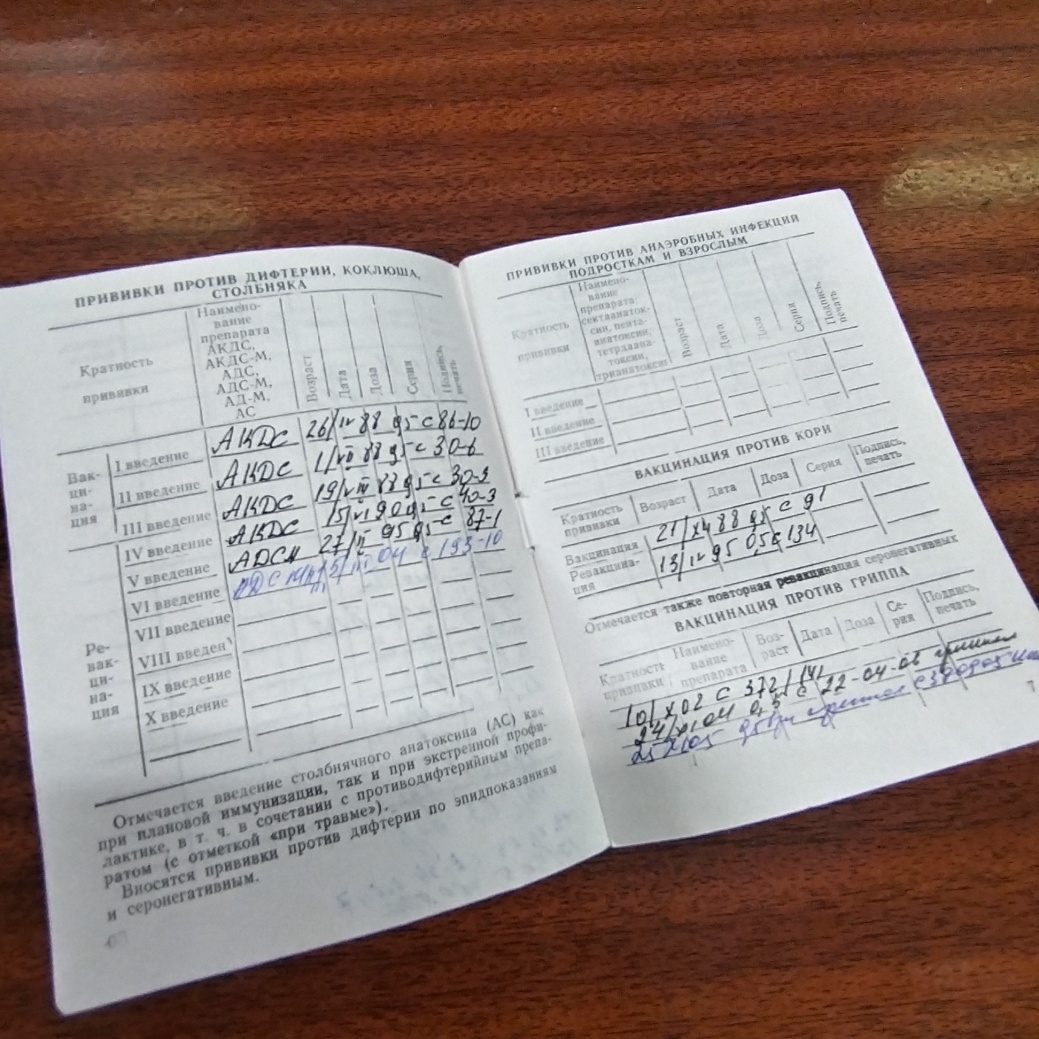 ПРИВИВКИ ПРОТИВ ДИФТЕРИИ, КОКЛЮША,
СТОЛБНЯКА
Кратность
прививки
Наимено-
вание
препарата
АКДС,
АКДС-М,
АДС,
АДС-М,
АД-М,
АС
Возраст
Дата
Доза
Серия
Подпись,
печать
Вак-
ци-
на-
ция
I введение АКДС 26/IV 88 0,5 с 86-10
II введение АКДС 1/VII 88 0,5 с 30-6
III введение АКДС 19/VIII 88 0,5 с 30-3
Ре-
вак-
ци-
на-
ция
IV введение АКДС 15/VI 90 0,5 с 40-3
V введение АДСМ 27/II 95 0,5 с 87-1
VI введение 04 с 193-10
VII введение
VIII введен
IX введение
X введение
Отмечается введение столбнячного анатоксина (АС) как
при плановой иммунизации, так и при экстренной профи-
лактике, в т. ч. в сочетании с противодифтерийным препа-
ратом (с отметкой «при травме»).
Вносятся прививки против дифтерии по эпидпоказаниям
и серонегативным.
ПРИВИВКИ ПРОТИВ АНАЭРОБНЫХ ИНФЕКЦИЙ
ПОДРОСТКАМ И ВЗРОСЛЫМ
Кратность
прививки
Наимено-
вание
препарата:
секстаанаток-
син, пента-
анатоксин,
тетраана-
токсин,
трианатоксин
Возраст
Дата
Доза
Серия
Подпись,
печать
I введение
II введение
III введение
ВАКЦИНАЦИЯ ПРОТИВ КОРИ
Кратность
прививки
Возраст
Дата
Доза
Серия
Подпись,
печать
Вакцинация 21/ 88 0,5 с 91
Ревакцина-
ция
13/IV 95 0,5 с 134
Отмечается также повторная ревакцинация серонегативных
ВАКЦИНАЦИЯ ПРОТИВ ГРИППА
Кратность
прививки
Наимено-
вание
препарата
Воз-
раст
Дата
Доза
Се-
рия
Подпись,
печать
10/X 02 с 372
24/XI 04 0,5 с 22-04-06
25 XI 05
7